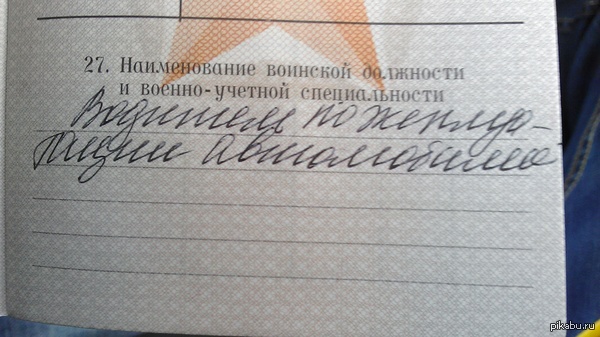 27. Наименование воинской должности
и военно-учетной специальности
Водитель по жеплуа-
тации автомобиля
pikabu.ru